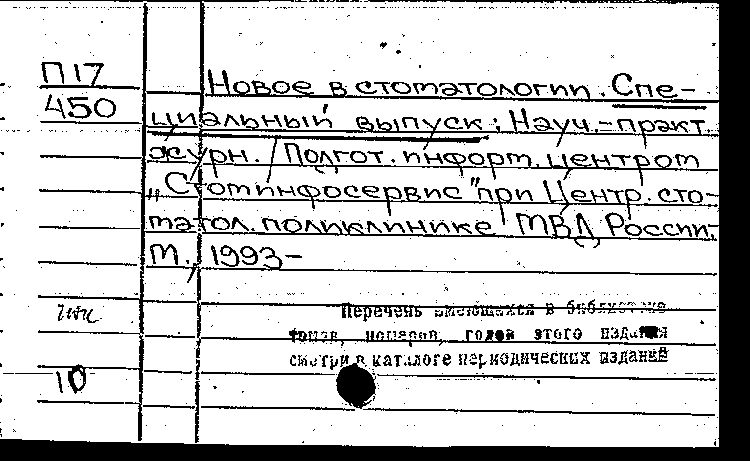 П17
450
Новое в стоматологии. Спе-
циальный выпуск: Науч.-практ.
журн. / Подгот. информ. центром
„Стоминфосервис" при Центр. сто-
матол. поликлинике МВД России.-
М., 1993-
Перечень имеющихся в библиотеке
томов, номеров, годов этого издания
смотри в каталоге периодических изданий
10